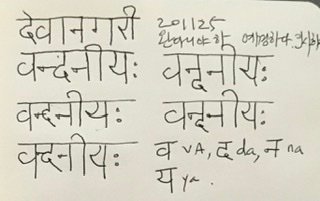 देवानगरी 201125
완다니야하 예경하다.
वन्दनीयः वन्दनीयः
वन्दनीयः वन्दनीयः
वन्दनीयः व vA, द da, न na
य ya.